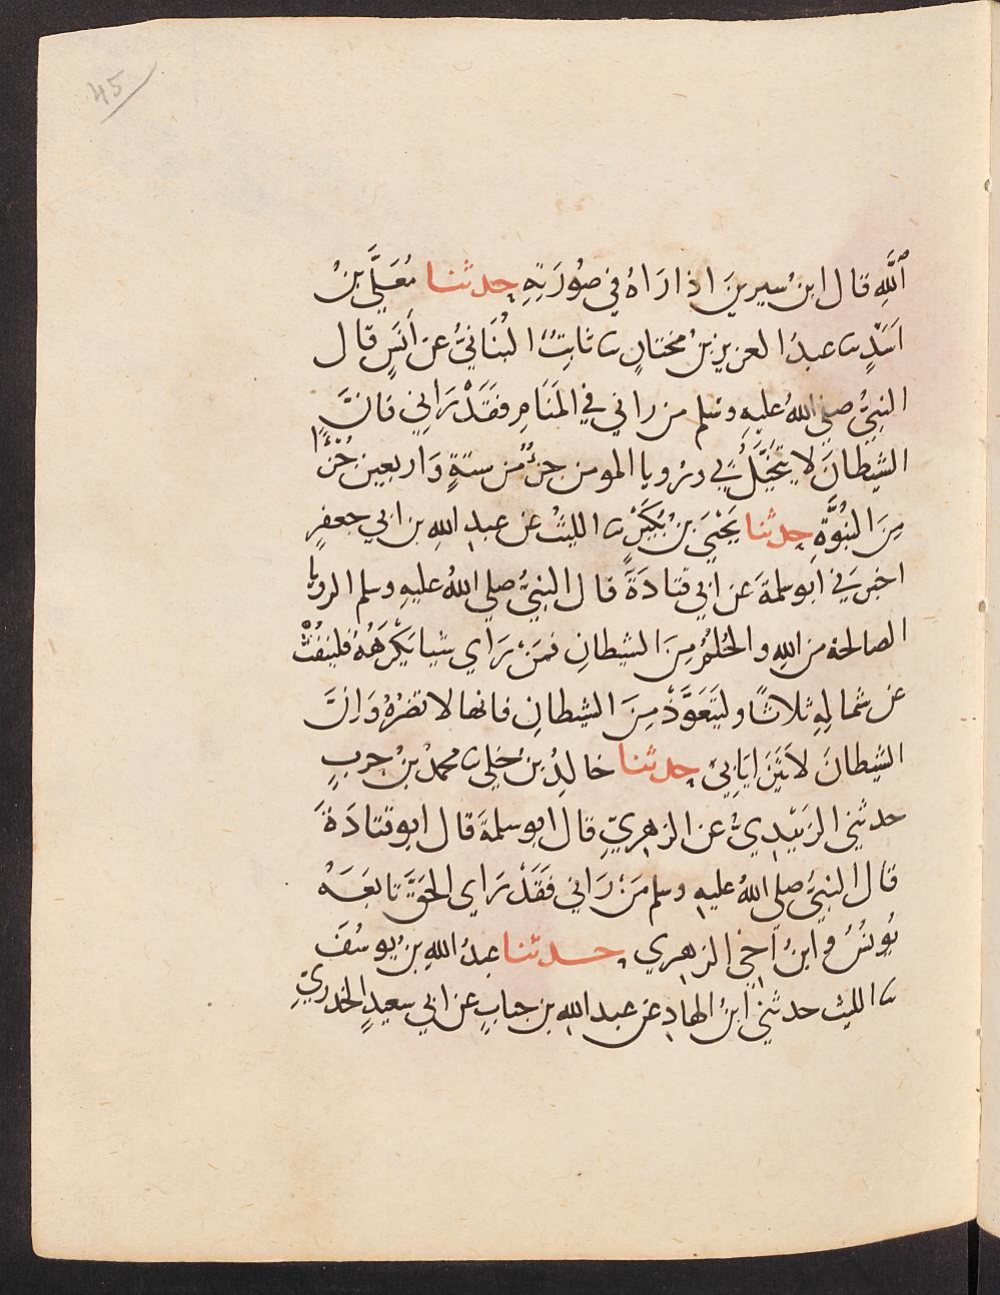 45
اَللَّهِ قال ابنُ سيرينَ اذا رَاهُ في صُورَتِهِ حدثنا مُعَلَّي بنُ
اَسَدٍ نا عبدُ العزيز بنُ مختارٍ نا ثابِتٌ البُنَانيُّ عن اَنَسٍ قال
النبيُّ صلي اللهُ عليهِ وسلم من راني في المَنَامِ فَقَدْ رَانِي فانَّ
الشيطانَ لا يتخَيَّلُ بِي ورُويا المومن جزءٌ من ستةٍ وَاربعين جُزْءًا
مِنَ النبُوَّةِ حدثنا يَحْيَي بنُ بُكَيْرٍ نا الليثُ عن عبدِ اللهِ بن ابي جعفرٍ
اخبرَني ابو سلمةَ عَن ابي قتادَةَ قال النبيُّ صلي اللهُ عليهِ وسلم الرويا
الصالحة من اللهِ والحُلمُ مِنَ الشيطانِ فمَنْ رَاي شيا يَكْرَهُهُ فلينفُثْ
عن شمالِهِ ثلاثًا وليَتَعَوَّذْ مِنَ الشيطانِ فانها لا تضرُهُ وَانَّ
الشيطانَ لا يَتَرَايَابِي حدثنا خالدُ بن خلي نا محمدُ بنُ حربٍ
حدثني الزبَيْدِيُّ عن الزهرِيِّ قال ابو سلمةَ قال ابو قتادَةَ
قال النبيُّ صلي اللهُ عليهِ وسلم مَنْ رَاني فَقَدْ رَاي الحَقَّ تابعَهُ
يُونسُ وابنُ اَخِي الزهرِي حدثنا عبدُ اللهِ بن يوسُفَ
نا الليث حدثني ابنُ الهادِ عن عبد الله بن خبابٍ عن ابي سعيدٍ الخدريِّ